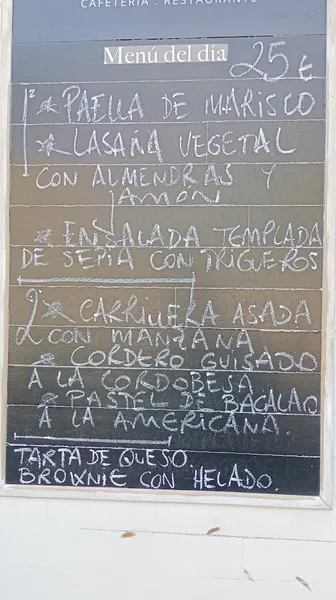 CAFETERÍA . RESTAURANTE
Menú del día 25 €
1º * PAELLA DE MARISCO
* LASAÑA VEGETAL
CON ALMENDRAS Y
JAMON
* ENSALADA TEMPLADA
DE SEPIA CON TRIGUEROS
2º * CARRILLERA ASADA
CON MANZANA
* CORDERO GUISADO
A LA CORDOBESA
* PASTEL DE BACALAO
A LA AMERICANA.
TARTA DE QUESO.
BROWNIE CON HELADO.